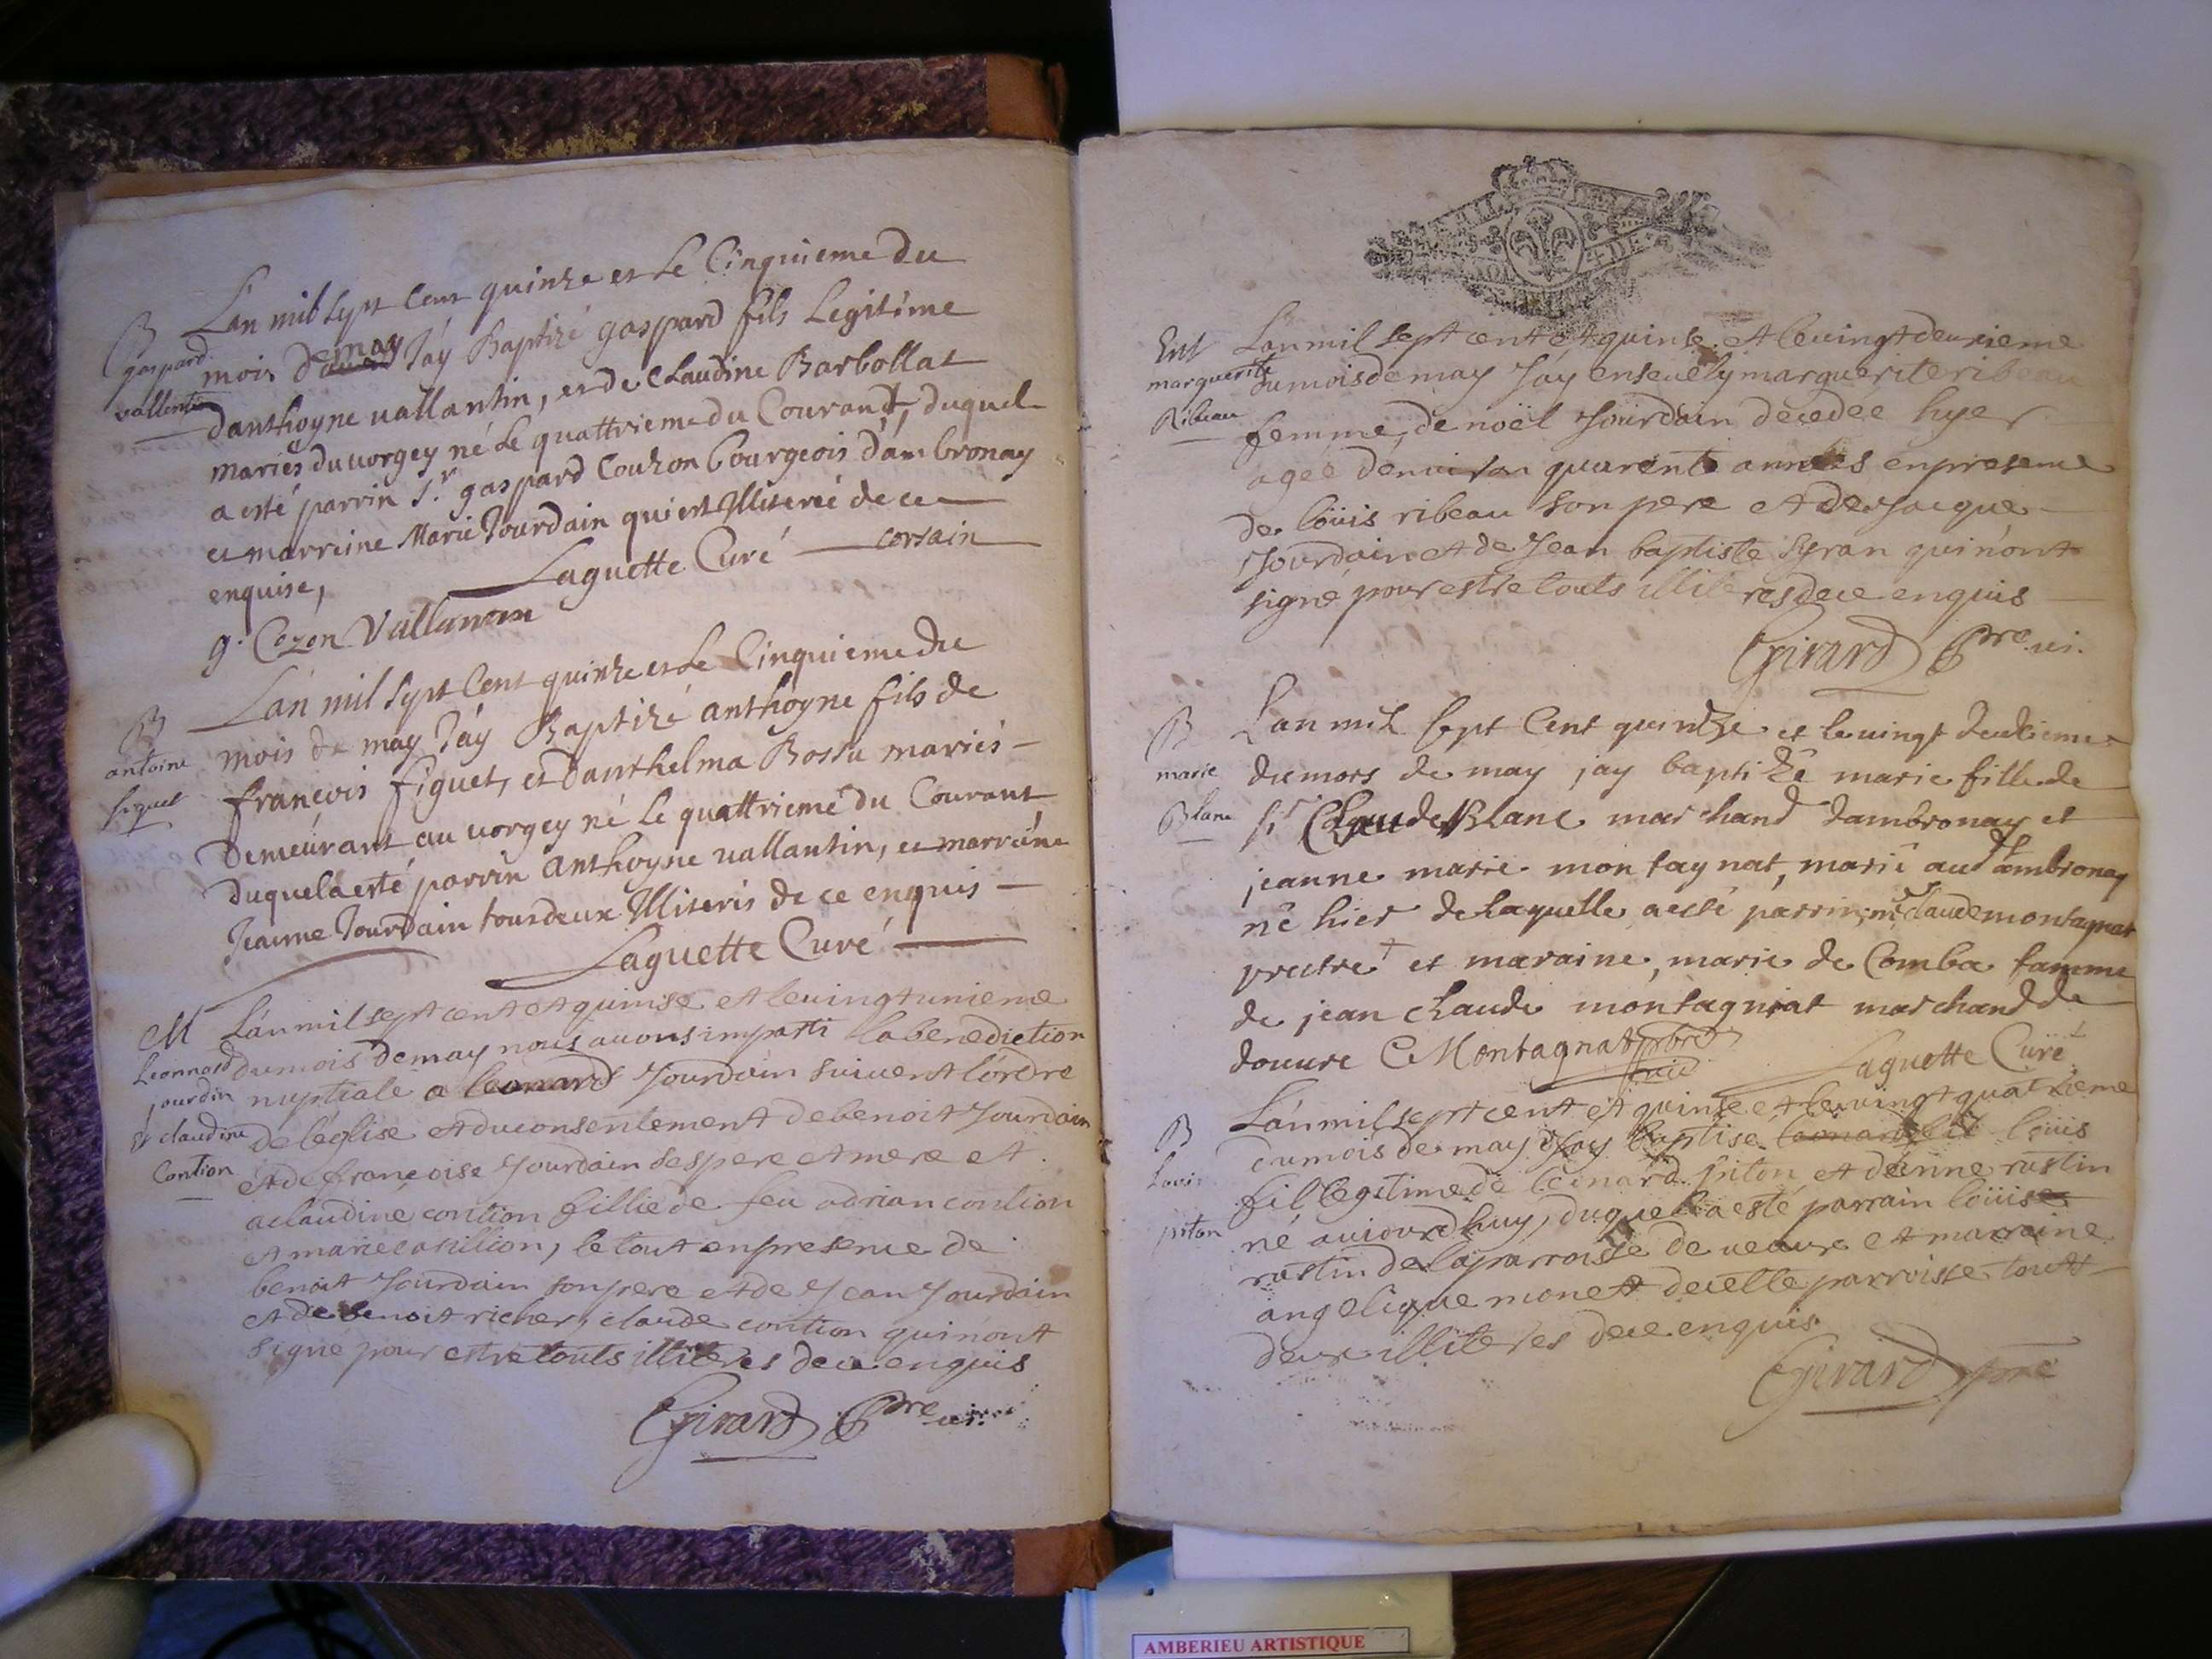 B
gaspard
vallentin
Lan mil sept cent quinze et le Cinquieme du
mois de may Jáy Baptizé gaspard fils Legitime
danthoyne vallantin, et de Claudine Barbollat
mariés du vorgey né le quattrieme du Courant, duquel
a esté parrin Sr. gaspard Couzon bourgeois dámbronay
et marreine Marie Jourdain qui est Illiterée de ce
enquise,
Laguette Curé
corsain
g. Cozon Vallantin
B
antoine
figuet
Lán mil sept Cent quinze et le Cinquieme du
mois de may Jáy Baptizé anthoyne fils de
françois figuet, et danthelma Bossu mariés
Demeurant au vorgey né le quattrieme du Courant
duquel a esté parrin anthoyne vallantin, et marreine
Jeanne Jourdain tous deux Illiteris de ce enquis
Laguette Curé
M
Leonnard
jourdin
et claudine
Contion
Lán mil sept cent et quinse et le vingt unieme
du mois de may nous avons imparti la benediction
nuptiale a leonard Jourdain suivent lórdre
de léglise et du consentement de benoit Jourdain
et de françoise Jourdain ses pere et mere et
a claudine contion fillie de feu adrian contion
et marie, le tout en presence de
benoit Jourdain son pere et de Jean Jourdain
et de benoit richer, claude contion qui nónt
signé pour estre touts illiteres de ce enquis
Girard Pre vi.
Ent
marguerite
Ribeau
Lan mil sept cent et quinse et le vingt deuxieme
du mois de may Jáy ensevely marguerite ribeau
femme de noël Jourdain decedée hyer
agée dénviron quarente années en presence
de loüis ribeau son pere et de Jacque
Jourdain et de Jean baptiste Syran qui nónt
signé pour estre touts illiteres de ce enquis
Girard Pre vi.
B
marie
Blanc
Lan mil sept Cent quinze et le vingt deuxieme
du mois de may jay baptizé marie fille de
sr Claude Blanc marchand dambronay et
jeanne marie montaynat, marié aud dt ambronay
né hier de laquelle a esté parrin, mr Claude montagnat
prestre et maraine, marie de Comba famme
de jean claude montagniat marchand de
douvre C Montagnat pbre
Laguette Curé
B
Louis
piton
Lán mil sept cent et quinse et le vingt quatrieme
du mois de may Jáy baptisé loüis
fil legitime de leonard piton et dánne rastin
né aujourdhuy, duquel a esté parrain loüis
rastin de la parroisse de vaux et maraine
angelique monet de cette parroisse touts
deux illiteres de ce enquis
Girard pre
AMBERIEU ARTISTIQUE